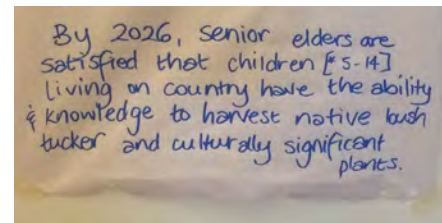 By 2026, senior elders are
satisfied that children [* 5-14]
living on country have the ability
& knowledge to harvest native bush
tucker and culturally significant
plants.